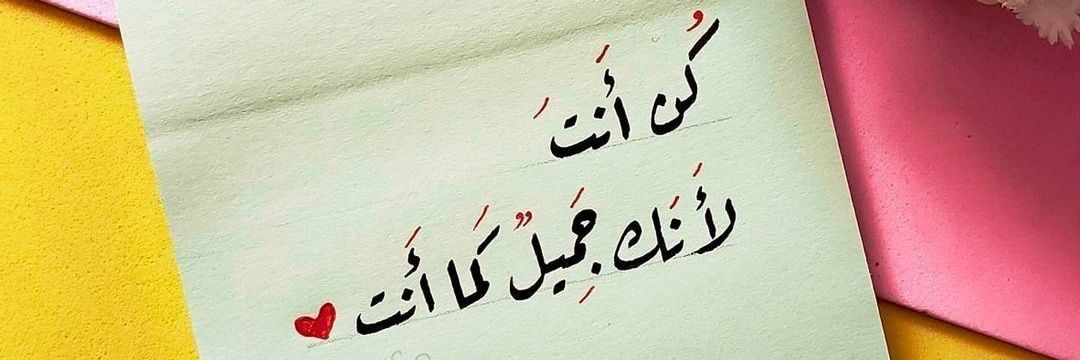 كُن أَنتَ
لأَنَك جَمِيلٌ كَما أَنت